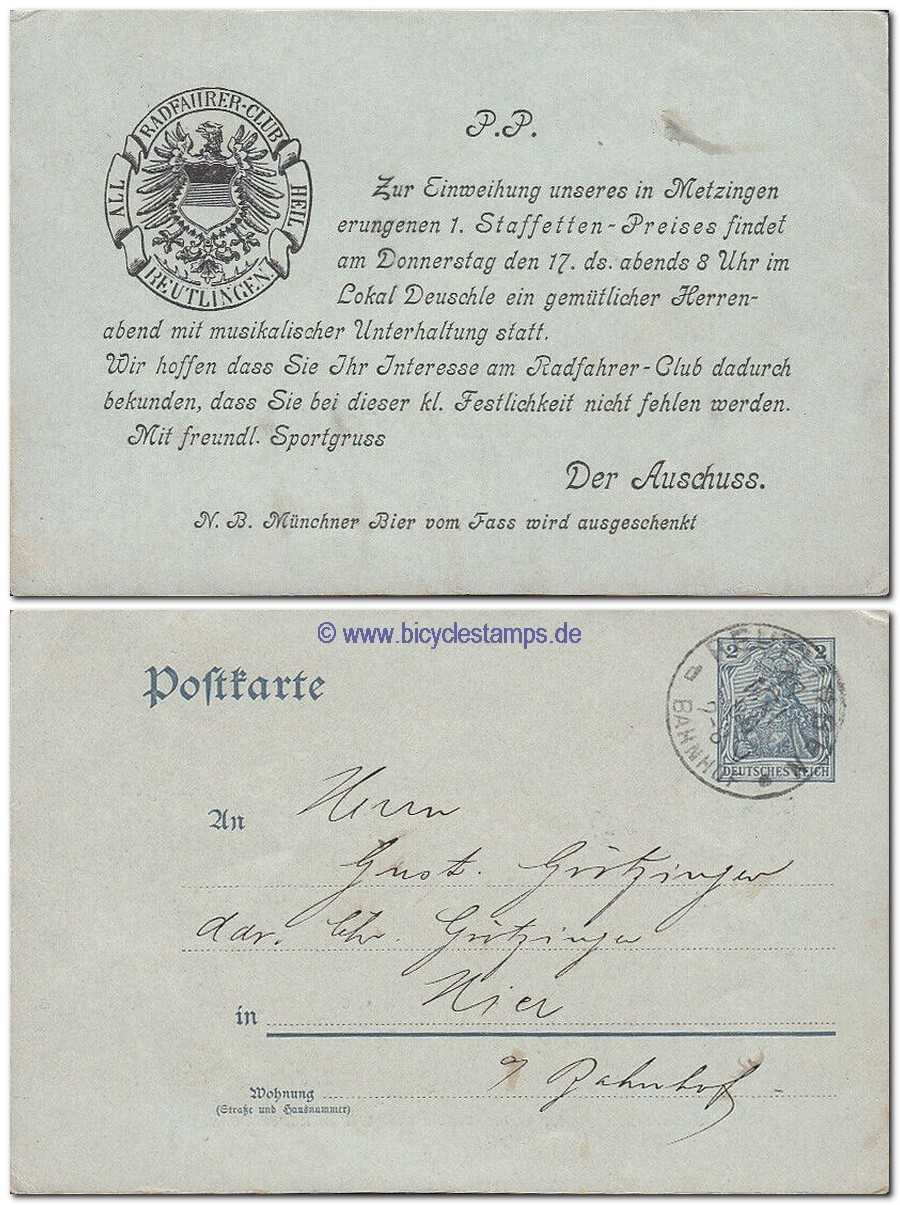 RADFAHRER-CLUB
ALL HEIL
REUTLINGEN.
P.P.
Zur Einweihung unseres in Metzingen
erungenen 1. Staffetten-Preises findet
am Donnerstag den 17. ds. abends 8 Uhr im
Lokal Deuschle ein gemütlicher Herren-
abend mit musikalischer Unterhaltung statt.
Wir hoffen dass Sie Ihr Interesse am Radfahrer-Club dadurch
bekunden, dass Sie bei dieser kl. Festlichkeit nicht fehlen werden.
Mit freundl. Sportgruss
Der Auschuss.
N. B. Münchner Bier vom Fass wird ausgeschenkt
© www.bicyclestamps.de
Postkarte
2 2
DEUTSCHES REICH
REUTLINGEN
BAHNHOF
An Herrn
Gust. Götzinger
Chr. Götzinger
in Hier
Bahnhof
Wohnung
(Straße und Hausnummer)